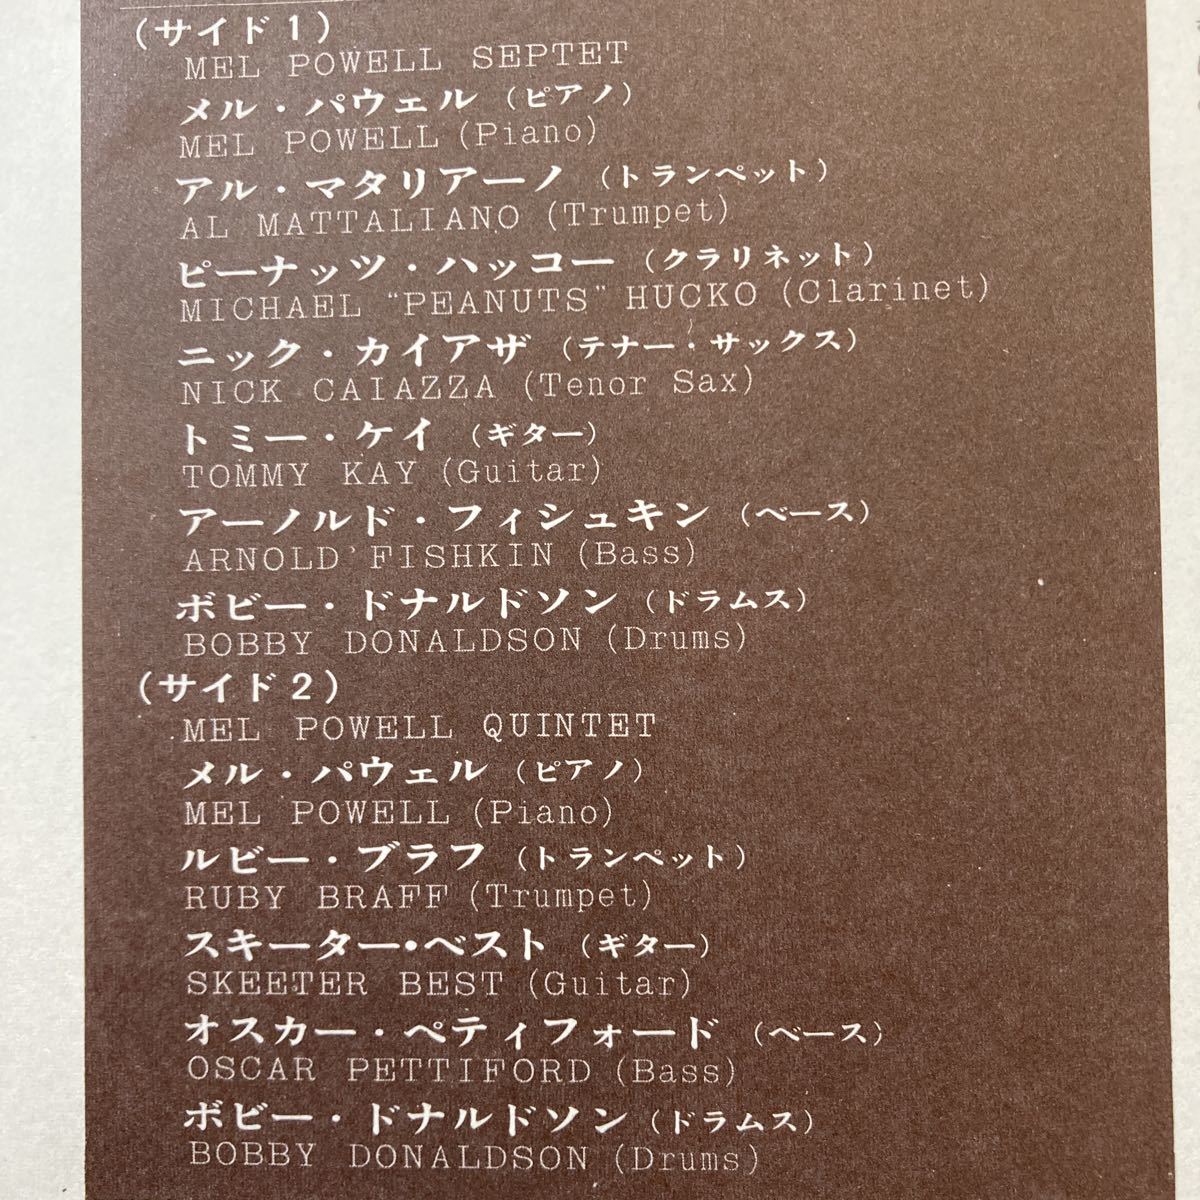 (サイド1)
MEL POWELL SEPTET
メル・パウェル (ピアノ)
MEL POWELL (Piano)
アル・マタリアーノ (トランペット)
AL MATTALIANO (Trumpet)
ピーナッツ・ハッコー (クラリネット)
MICHAEL "PEANUTS" HUCKO (Clarinet)
ニック・カイアザ (テナー・サックス)
NICK CAIAZZA (Tenor Sax)
トミー・ケイ (ギター)
TOMMY KAY (Guitar)
アーノルド・フィシュキン (ベース)
ARNOLD FISHKIN (Bass)
ボビー・ドナルドソン (ドラムス)
BOBBY DONALDSON (Drums)
(サイド2)
MEL POWELL QUINTET
メル・パウェル (ピアノ)
MEL POWELL (Piano)
ルビー・ブラフ (トランペット)
RUBY BRAFF (Trumpet)
スキーター・ベスト (ギター)
SKEETER BEST (Guitar)
オスカー・ペティフォード (ベース)
OSCAR PETTIFORD (Bass)
ボビー・ドナルドソン (ドラムス)
BOBBY DONALDSON (Drums)